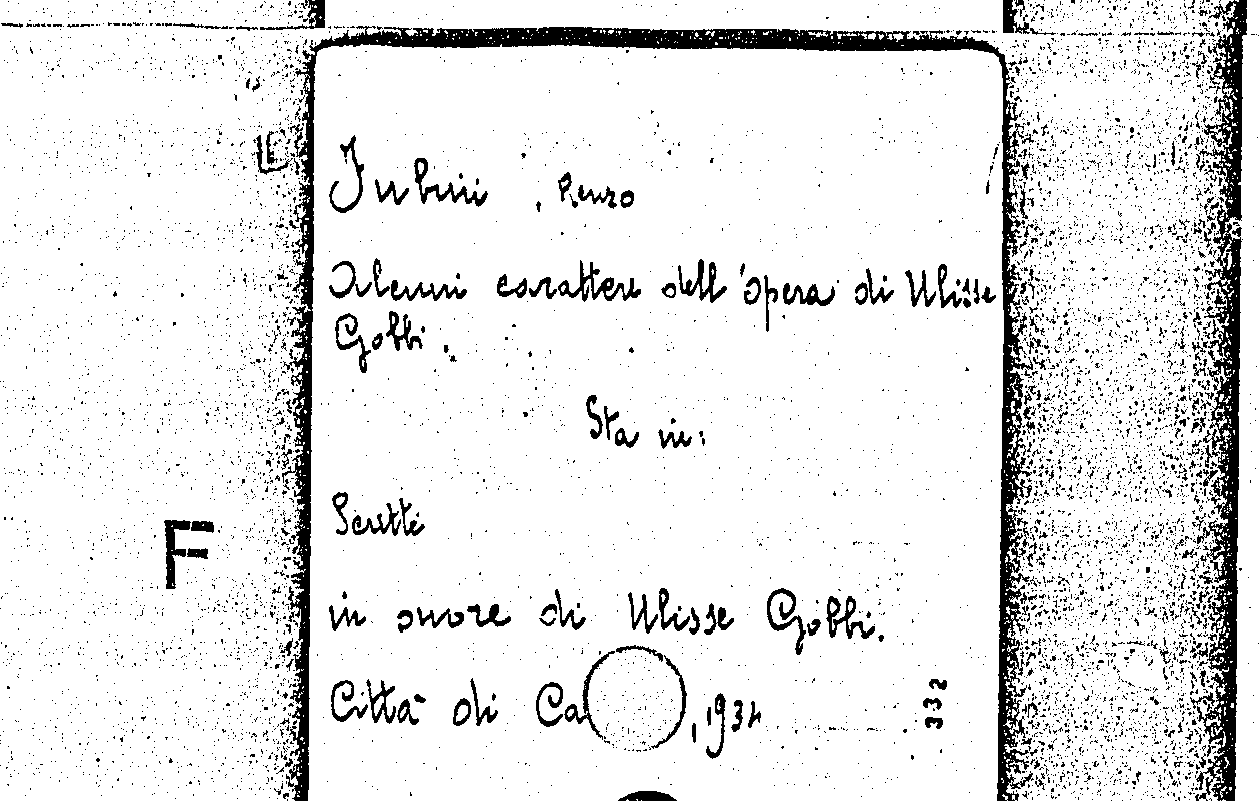 L
Fubini , Renzo
Alcuni carattere dell'opera di Ulisse
Gobbi.
Sta in:
Scritti
F
in onore di Ulisse Gobbi.
Città di Ca ,193
332